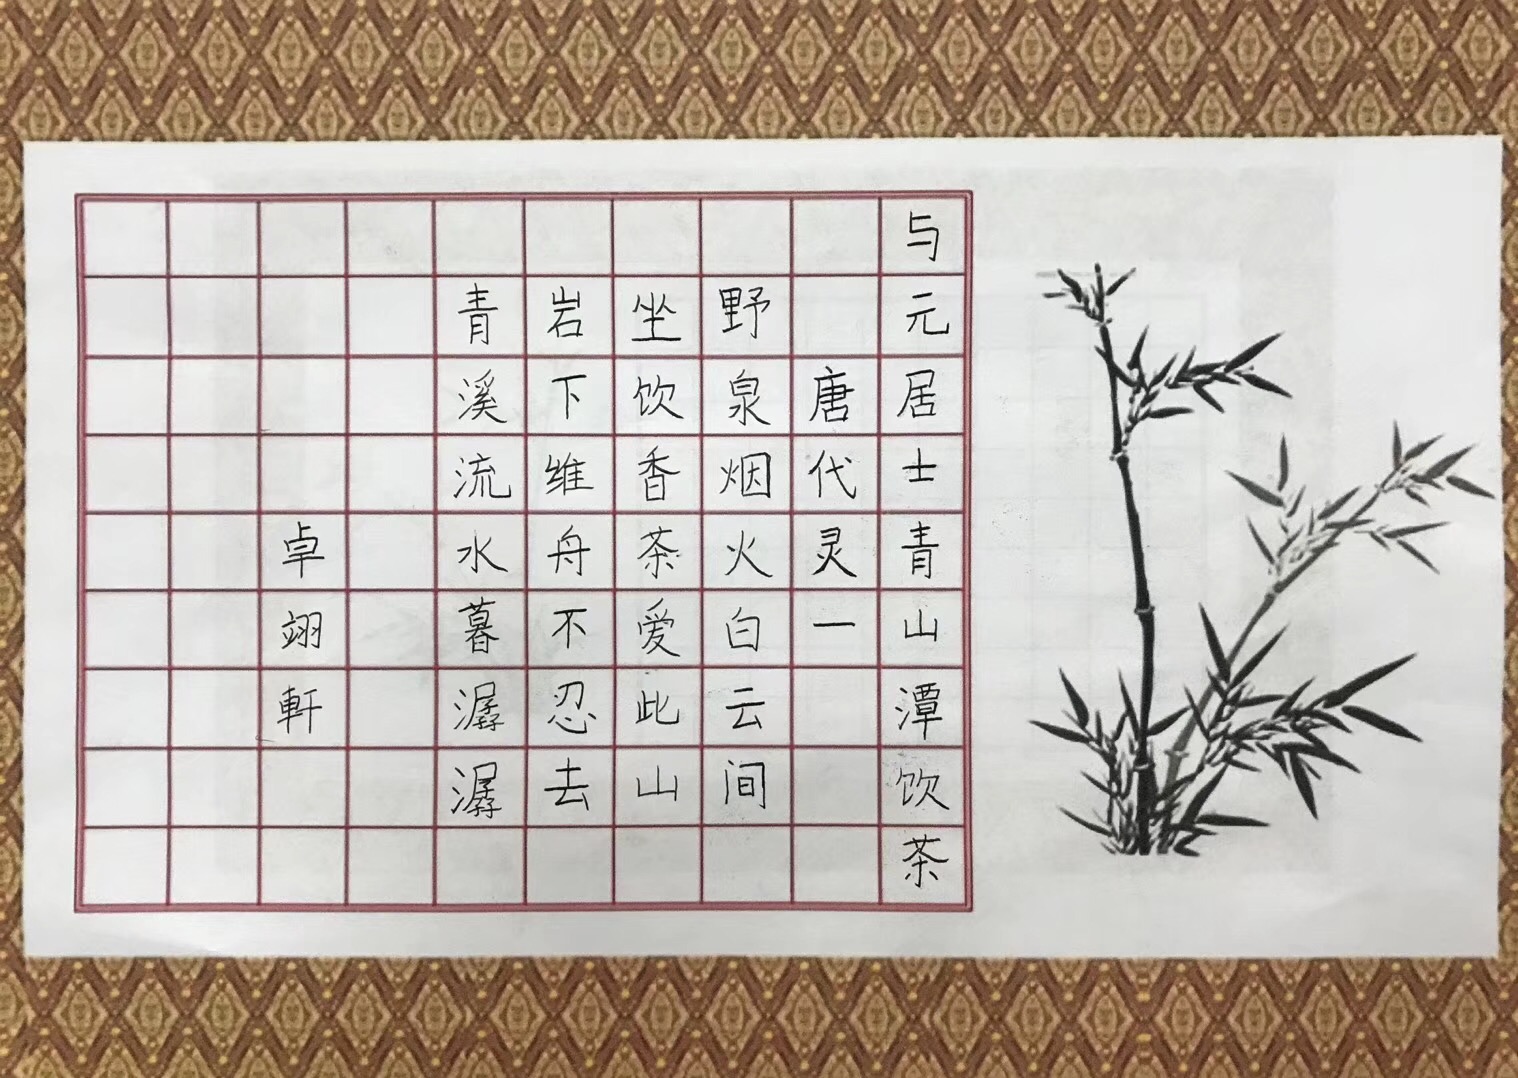 与元居士青山潭饮茶
唐代灵一
野泉烟火白云间
坐饮香茶爱此山
岩下维舟不忍去
青溪流水暮潺潺
卓翊軒